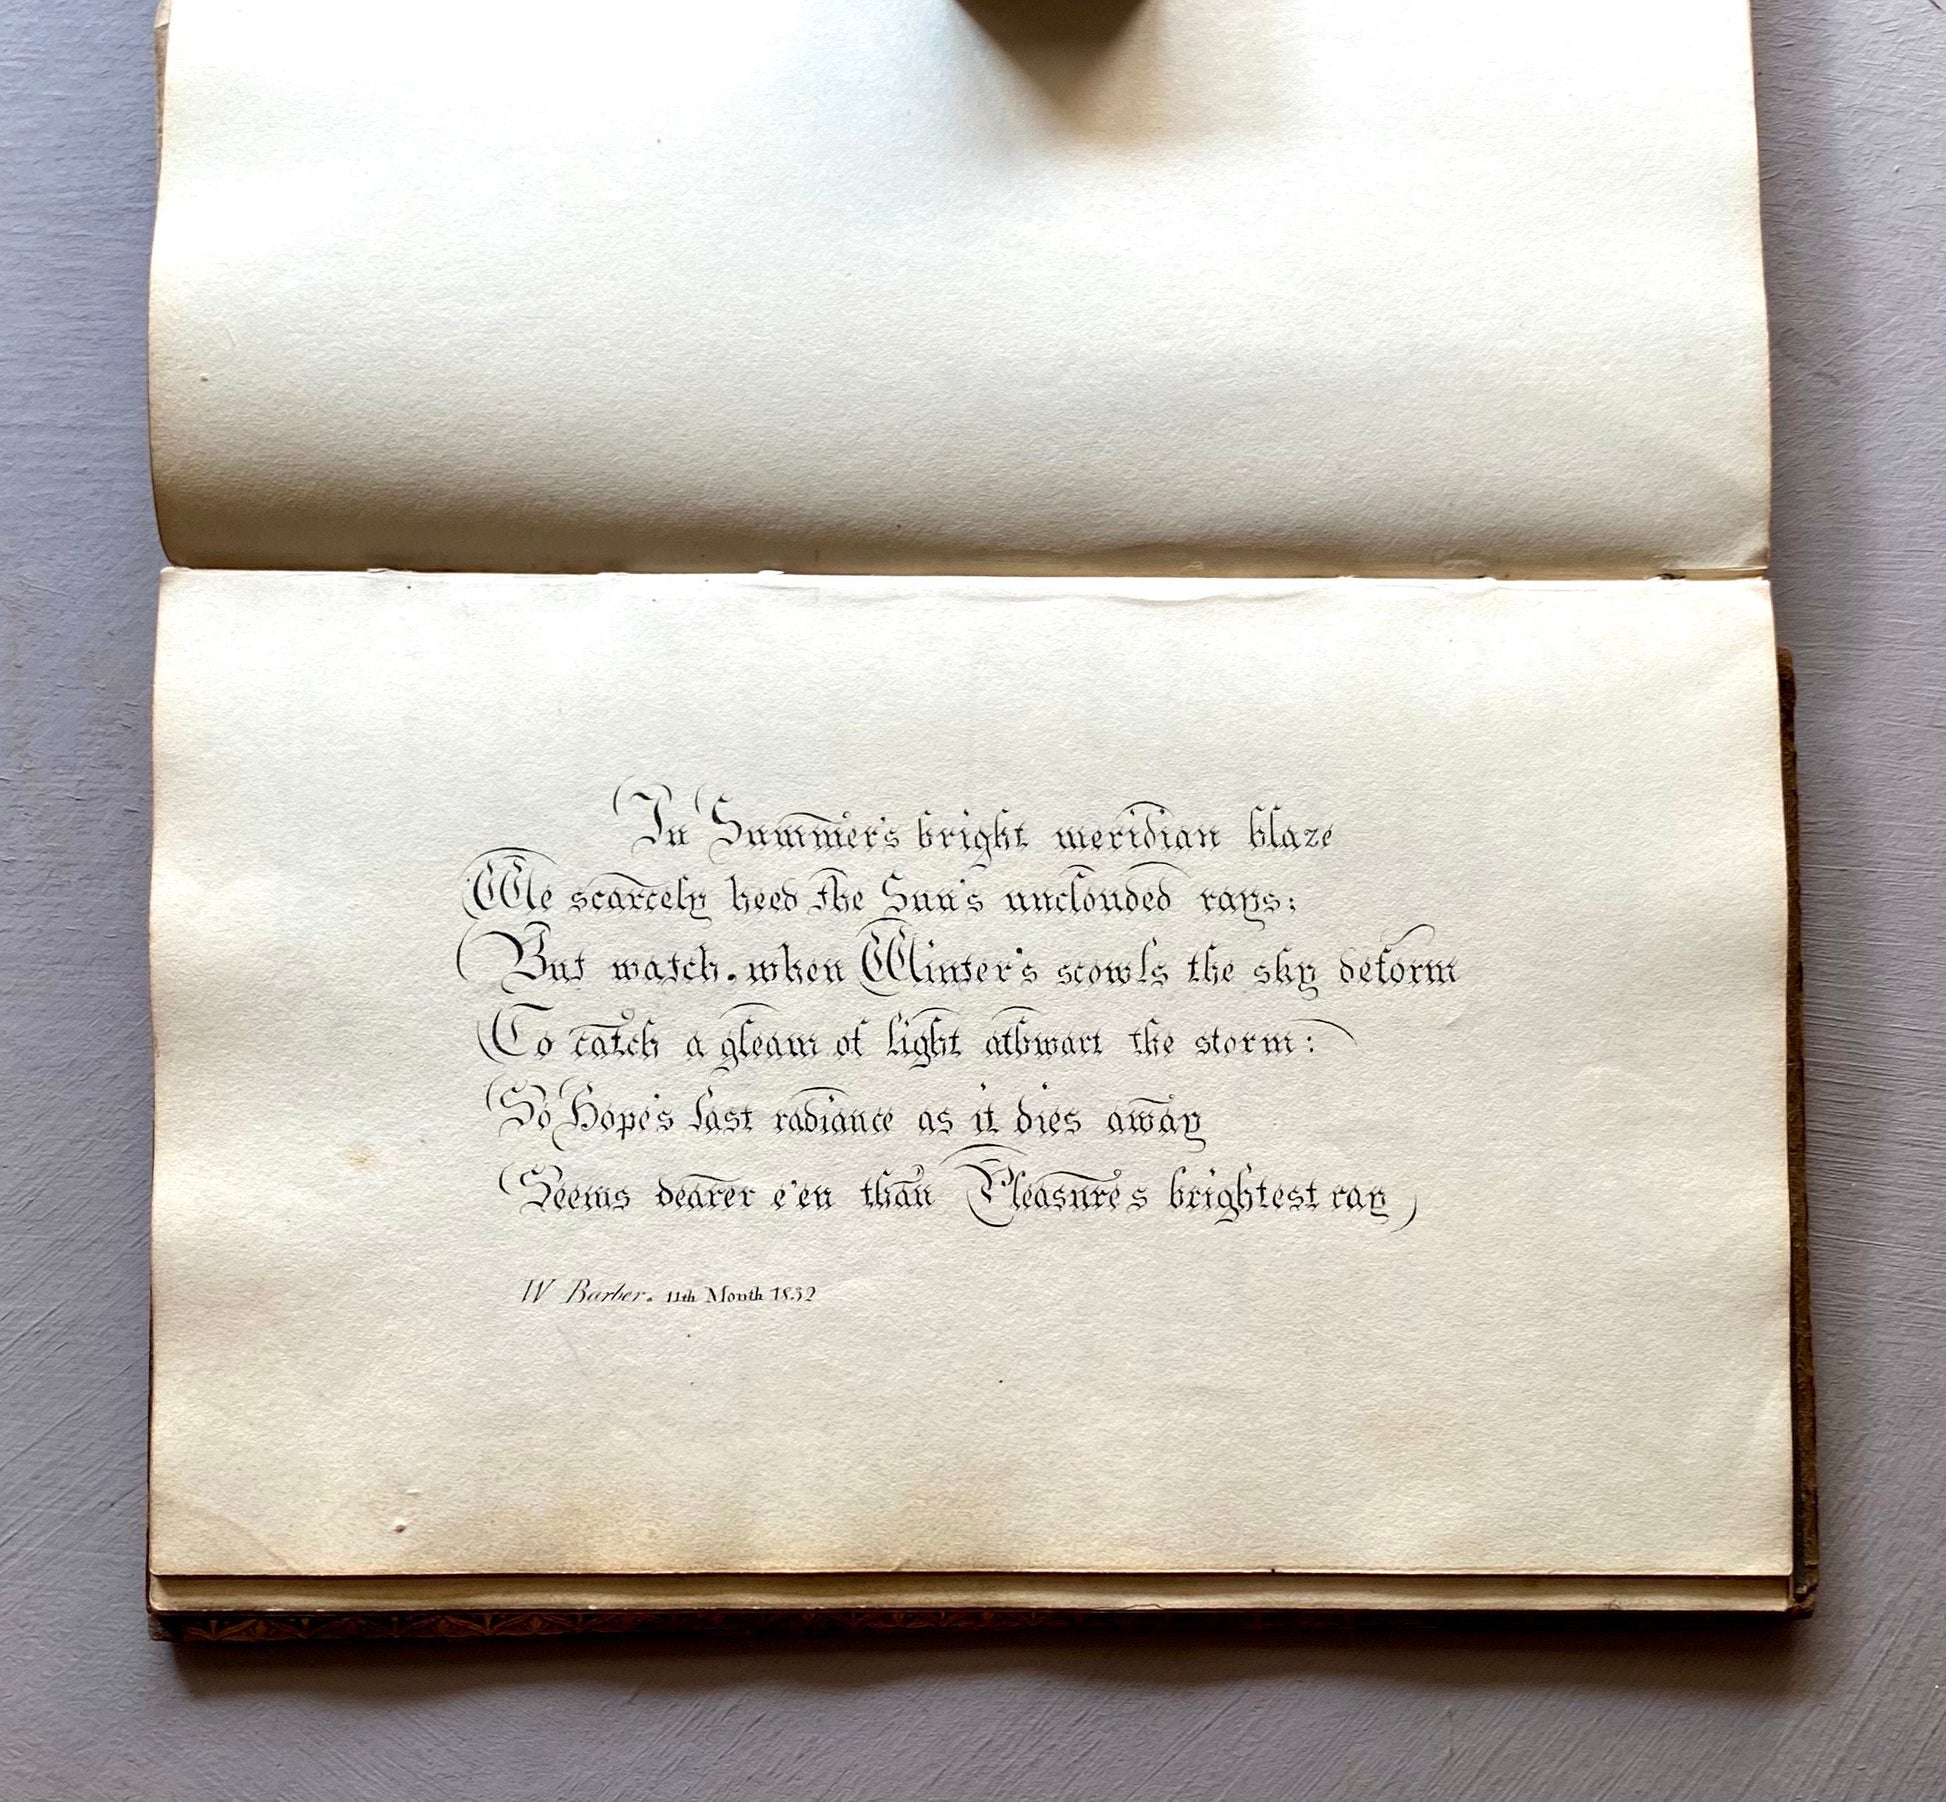 In Summer's bright meridian blaze
We scarcely heed the Sun's unclouded rays;
But watch, when Winter's scowls the sky deform
To catch a gleam of light athwart the storm:
So Hope's last radiance as it dies away
Seems dearer e'en than Pleasure's brightest ray
W Barber. 11th Month 1832